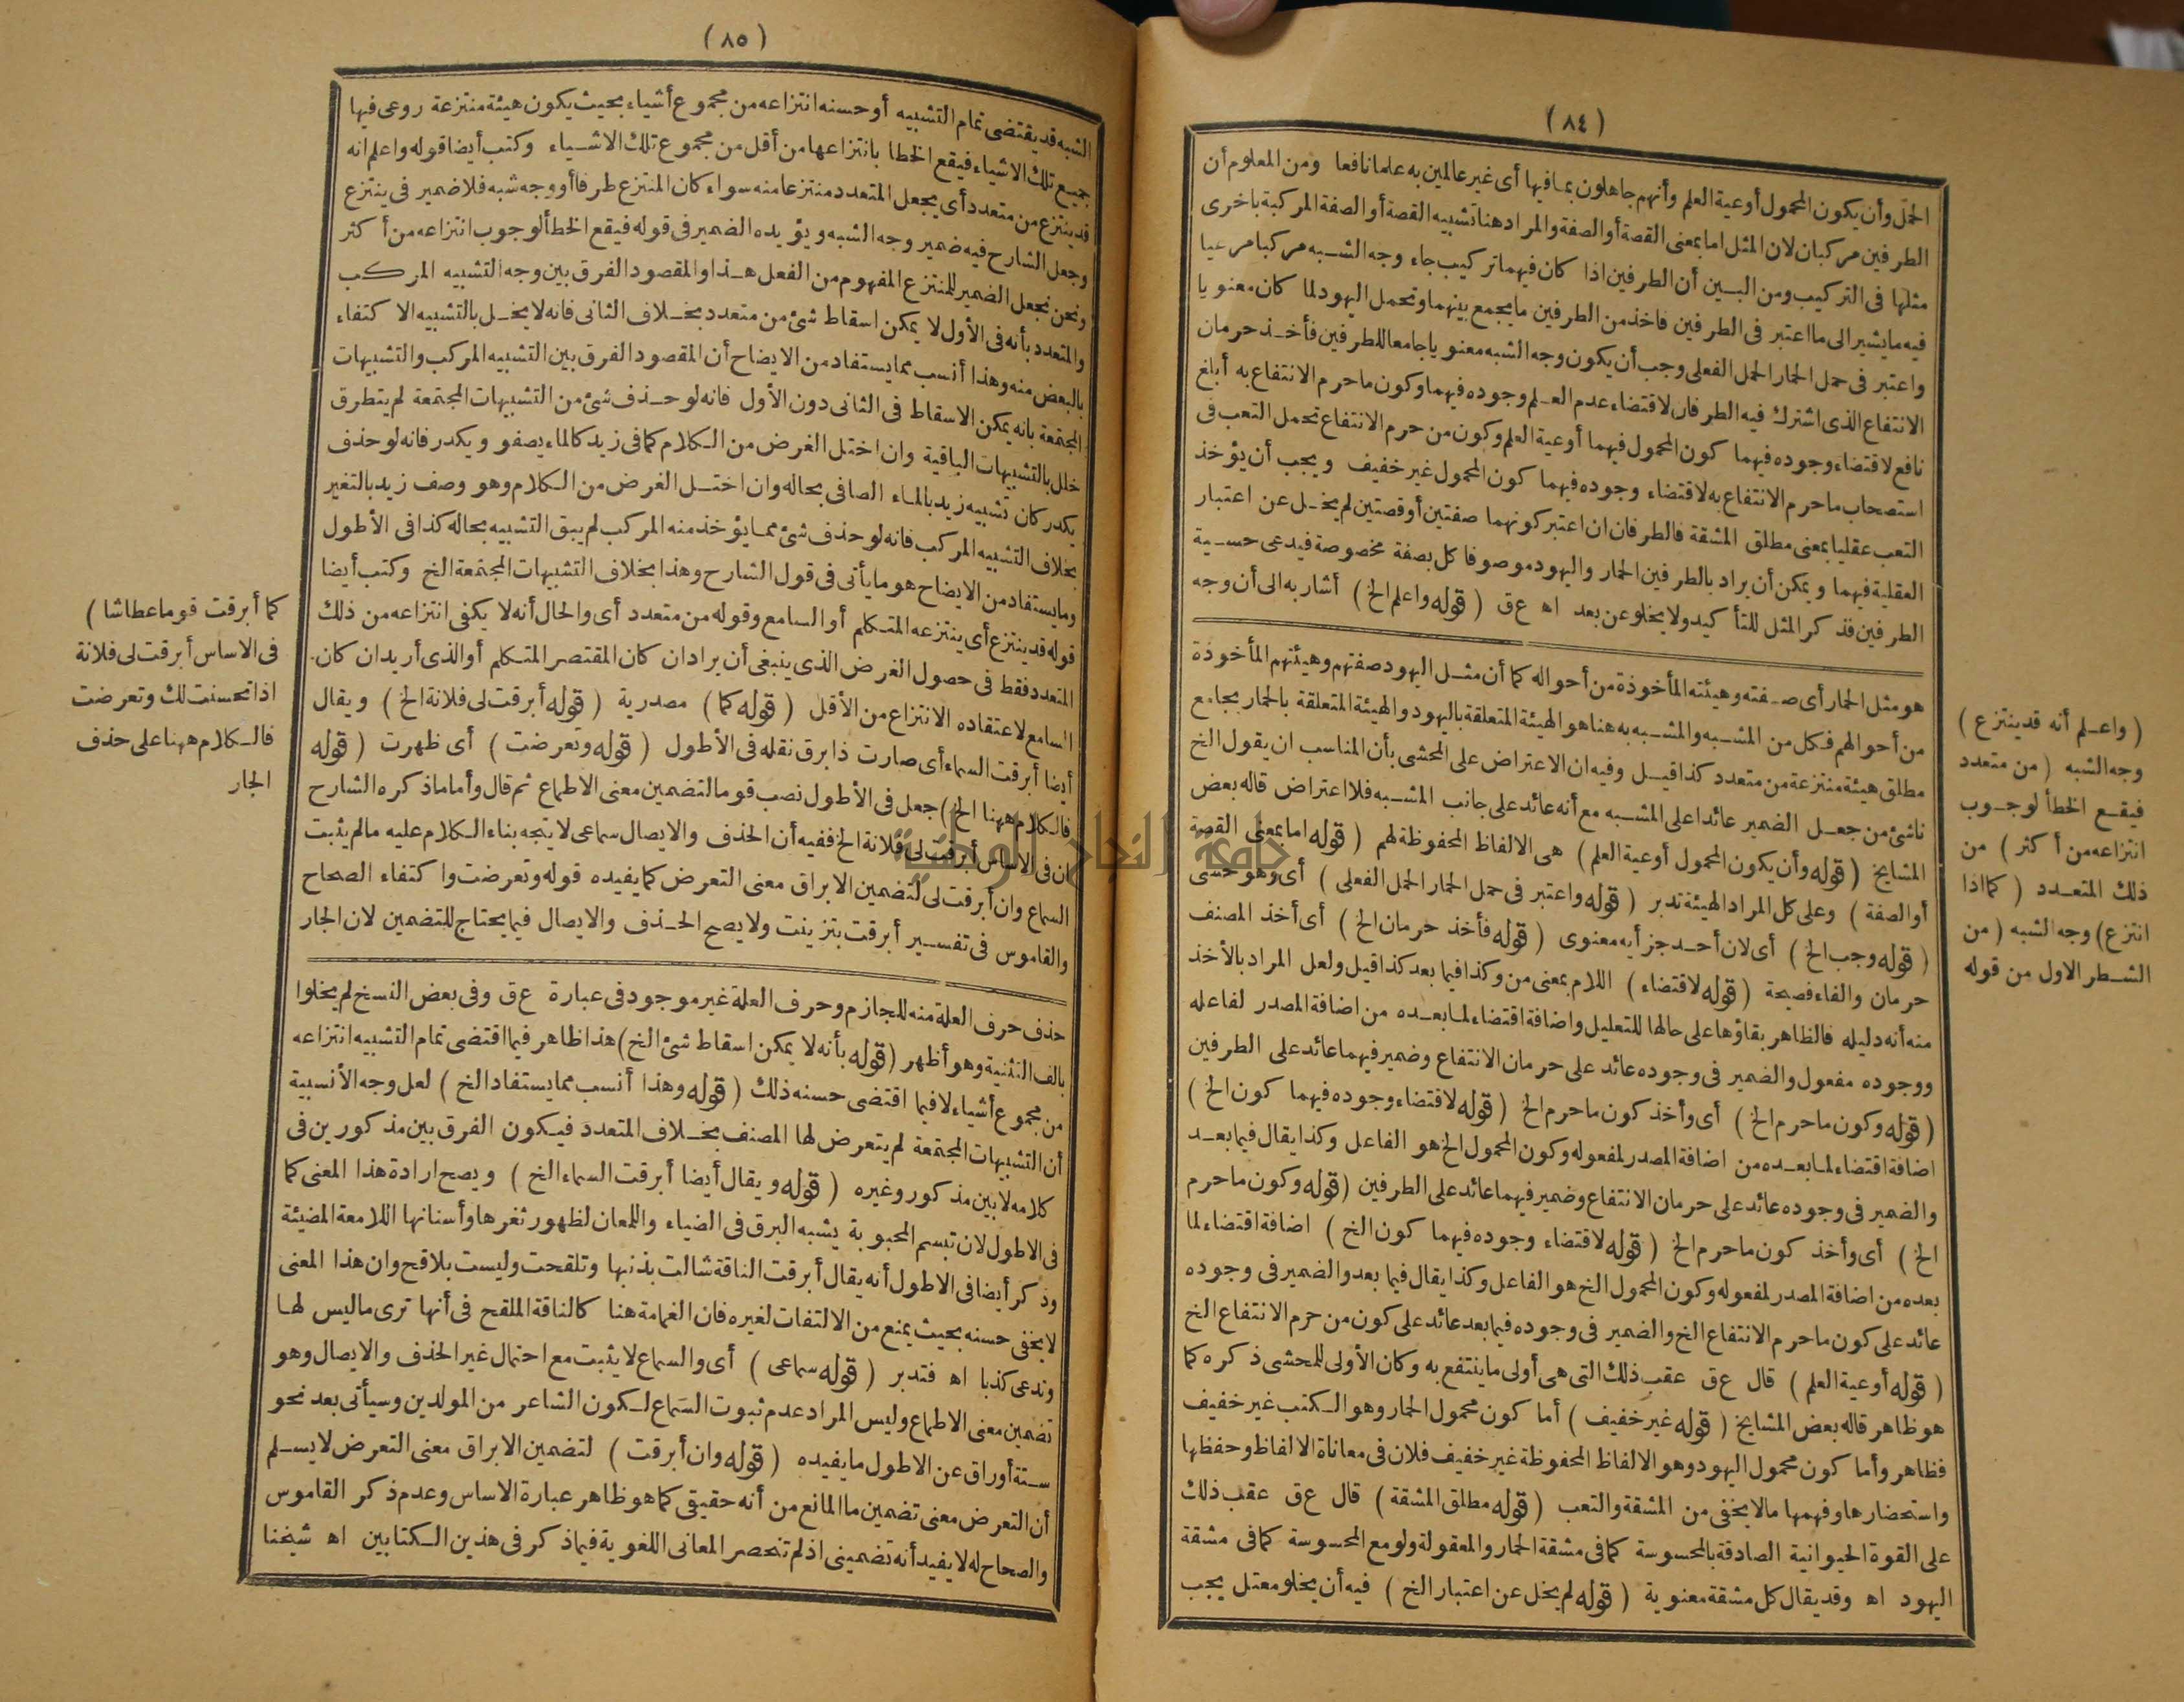 (٨٤)
الحمل وأن يكون المحمول أوعية العلم وأنهم جاهلون بما فيها أى غير عالمين به علما نافعا ومن المعلوم أن
الطرفين مركبان لان المثل اما بمعنى القصة أو الصفة والمراد هنا تشبيه القصة أو الصفة المركبة باخرى
مثلها فى التركيب ومن البين أن الطرفين اذا كان فيهما تركيب جاء وجه الشبه مركبا مرعيا
فيه ما يشير الى ما اعتبر فى الطرفين فاخذ من الطرفين ما يجمع بينهما وتحمل اليهود لما كان معنويا
واعتبر فى حمل الحمار الحمل الفعلى وجب أن يكون وجه الشبه معنويا جامعا للطرفين فأخذ حرمان
الانتفاع الذى اشترك فيه الطرفان لاقتضاء عدم العلم وجوده فيهما وكون ما حرم الانتفاع به أبلغ
نافع لاقتضاء وجوده فيهما كون المحمول فيهما أوعية العلم وكون من حرم الانتفاع تحمل التعب فى
استصحاب ما حرم الانتفاع به لاقتضاء وجوده فيهما كون المحمول غير خفيف ويجب أن يؤخذ
التعب عقليا بمعنى مطلق المشقة فالطرفان ان اعتبر كونهما صفتين أو قصتين لم يخل عن اعتبار
العقلية فيهما ويمكن أن يراد بالطرفين الحمار واليهود موصوفا كل بصفة مخصوصة فيدعى حسية
الطرفين فذكر المثل للتأكيد ولا يخلو عن بعد اه ع ق (قوله واعلم الخ) أشار به الى أن وجه
هو مثل الحمار أى صفته وهيئته المأخوذة من أحواله كما أن مثل اليهود صفتهم وهيئتهم المأخوذة
من أحوالهم فكل من المشبه والمشبه به هنا هو الهيئة المتعلقة باليهود والهيئة المتعلقة بالحمار بجامع
مطلق هيئة منتزعة من متعدد كذا قيل وفيه ان الاعتراض على المحشى بأن المناسب ان يقول الخ
ناشئ من جعل الضمير عائدا على المشبه مع أنه عائد على جانب المشبه فلا اعتراض قاله بعض
المشايخ (قوله وأن يكون المحمول أوعية العلم) هى الالفاظ المحفوظة لهم (قوله اما بمعنى القصة
أو الصفة) وعلى كل المراد الهيئة تدبر (قوله واعتبر فى حمل الحمار الحمل الفعلى) أى وهو حسى
(قوله وجب الخ) أى لان أحد جزأيه معنوى (قوله فأخذ حرمان الخ) أى أخذ المصنف
حرمان والفاء فصيحة (قوله لاقتضاء) اللام بمعنى من وكذا فيما بعد كذا قيل ولعل المراد بالأخذ
منه أنه دليله فالظاهر بقاؤها على حالها للتعليل واضافة اقتضاء لما بعده من اضافة المصدر لفاعله
ووجوده مفعول والضمير فى وجوده عائد على حرمان الانتفاع وضمير فيهما عائد على الطرفين
(قوله وكون ما حرم الخ) أى وأخذ كون ما حرم الخ (قوله لاقتضاء وجوده فيهما كون الخ)
اضافة اقتضاء لما بعده من اضافة المصدر لمفعوله وكون المحمول الخ هو الفاعل وكذا يقال فيما بعد
والضمير فى وجوده عائد على حرمان الانتفاع وضمير فيهما عائد على الطرفين (قوله وكون ما حرم
الخ) أى وأخذ كون ما حرم الخ (قوله لاقتضاء وجوده فيهما كون الخ) اضافة اقتضاء لما
بعده من اضافة المصدر لمفعوله وكون المحمول الخ هو الفاعل وكذا يقال فيما بعد والضمير فى وجوده
عائد على كون ما حرم الانتفاع الخ والضمير فى وجوده فيما بعد عائد على كون من حرم الانتفاع الخ
(قوله أوعية العلم) قال ع ق عقب ذلك التى هى أولى ما ينتفع به وكان الأولى للمحشى ذكره كما
هو ظاهر قاله بعض المشايخ (قوله غير خفيف) أما كون محمول الحمار وهو الكتب غير خفيف
فظاهر وأما كون محمول اليهود وهو الالفاظ المحفوظة غير خفيف فلان فى معاناة الالفاظ وحفظها
واستحضارها وفهمها ما لا يخفى من المشقة والتعب (قوله مطلق المشقة) قال ع ق عقب ذلك
على القوة الحيوانية الصادقة بالمحسوسة كما فى مشقة الحمار والمعقولة ولو مع المحسوسة كما فى مشقة
اليهود اه وقد يقال كل مشقة معنوية (قوله لم يخل عن اعتبار الخ) فيه أن يخلو معتل يجب
(واعلم أنه قد ينتزع)
وجه الشبه (من متعدد
فيقع الخطأ لوجوب
انتزاعه من أكثر) من
ذلك المتعدد (كما اذا
انتزع) وجه الشبه (من
الشطر الاول من قوله
(٨٥)
الشبه قد يقتضى تمام التشبيه أو حسنه انتزاعه من مجموع أشياء بحيث يكون هيئة منتزعة روعى فيها
جميع تلك الاشياء فيقع الخطا بانتزاعها من أقل من مجموع تلك الاشياء وكتب أيضا قوله واعلم انه
قد ينتزع من متعدد أى يجعل المتعدد منتزعا منه سواء كان المنتزع طرفا أو وجه شبه فلا ضمير فى ينتزع
وجعل الشارح فيه ضمير وجه الشبه ويؤيده الضمير فى قوله فيقع الخطأ لوجوب انتزاعه من أكثر
ونحن نجعل الضمير للمنتزع المفهوم من الفعل هذا والمقصود الفرق بين وجه التشبيه المركب
والمتعدد بأنه فى الأول لا يمكن اسقاط شئ من متعدد بخلاف الثانى فانه لا يخل بالتشبيه الاكتفاء
بالبعض منه وهذا أنسب مما يستفاد من الايضاح أن المقصود الفرق بين التشبيه المركب والتشبيهات
المجتمعة بانه يمكن الاسقاط فى الثانى دون الأول فانه لو حذف شئ من التشبيهات المجتمعة لم يتطرق
خلل بالتشبيهات الباقية وان اختل الغرض من الكلام كما فى زيد كالماء يصفو ويكدر فانه لو حذف
يكدر كان تشبيه زيد بالماء الصافى بحاله وان اختل الغرض من الكلام وهو وصف زيد بالتغير
بخلاف التشبيه المركب فانه لو حذف شئ مما يؤخذ منه المركب لم يبق التشبيه بحاله كذا فى الأطول
وما يستفاد من الايضاح هو ما يأتى فى قول الشارح وهذا بخلاف التشبيهات المجتمعة الخ وكتب أيضا
قوله قد ينتزع أى ينتزعه المتكلم أو السامع وقوله من متعدد أى والحال أنه لا يكفى انتزاعه من ذلك
المتعدد فقط فى حصول الغرض الذى ينبغى أن يراد ان كان المقتصر المتكلم أو الذى أريد ان كان
السامع لاعتقاده الانتزاع من الأقل (قوله كما) مصدرية (قوله أبرقت لى فلانة الخ) ويقال
أيضا أبرقت السماء أى صارت ذا برق نقله فى الأطول (قوله وتعرضت) أى ظهرت (قوله
فالكلام ههنا الخ) جعل فى الأطول نصب قوما لتضمين معنى الاطماع ثم قال وأما ما ذكره الشارح
ان فى الاساس أبرقت لى فلانة الخ ففيه أن الحذف والايصال سماعى لا يتجه بناء الكلام عليه ما لم يثبت
السماع وان أبرقت لى لتضمين الابراق معنى التعرض كما يفيده قوله وتعرضت واكتفاء الصحاح
والقاموس فى تفسير أبرقت بتزينت ولا يصح الحذف والايصال فيما يحتاج للتضمين لان الجار
حذف حرف العلة منه للجازم وحرف العلة غير موجود فى عبارة ع ق وفى بعض النسخ لم يخلوا
بالف التثنية وهو أظهر (قوله بأنه لا يمكن اسقاط شئ الخ) هذا ظاهر فيما اقتضى تمام التشبيه انتزاعه
من مجموع أشياء لا فيما اقتضى حسنه ذلك (قوله وهذا أنسب مما يستفاد الخ) لعل وجه الأنسبية
أن التشبيهات المجتمعة لم يتعرض لها المصنف بخلاف المتعدد فيكون الفرق بين مذكورين فى
كلامه لا بين مذكور وغيره (قوله ويقال أيضا أبرقت السماء الخ) ويصح ارادة هذا المعنى كما
فى الاطول لان تبسم المحبوبة يشبه البرق فى الضياء واللمعان لظهور ثغرها وأسنانها اللامعة المضيئة
وذكر أيضا فى الاطول أنه يقال أبرقت الناقة شالت بذنبها وتلقحت وليست بلاقح وان هذا المعنى
لا يخفى حسنه بحيث يمنع من الالتفات لغيره فان الغمامة هنا كالناقة الملقح فى أنها ترى ما ليس لها
وتدعى كذبا اه فتدبر (قوله سماعى) أى والسماع لا يثبت مع احتمال غير الحذف والايصال وهو
تضمين معنى الاطماع وليس المراد عدم ثبوت السماع لكون الشاعر من المولدين وسيأتى بعد نحو
ستة أوراق عن الاطول ما يفيده (قوله وان أبرقت) لتضمين الابراق معنى التعرض لا يسلم
أن التعرض معنى تضمين ما المانع من أنه حقيقى كما هو ظاهر عبارة الاساس وعدم ذكر القاموس
والصحاح له لا يفيد أنه تضمينى اذ لم تنحصر المعانى اللغوية فيما ذكر فى هذين الكتابين اه شيخنا
كما أبرقت قوما عطاشا)
فى الاساس أبرقت لى فلانة
اذا تحسنت لك وتعرضت
فالكلام ههنا على حذف
الجار
جامعة النجاح الوطنية